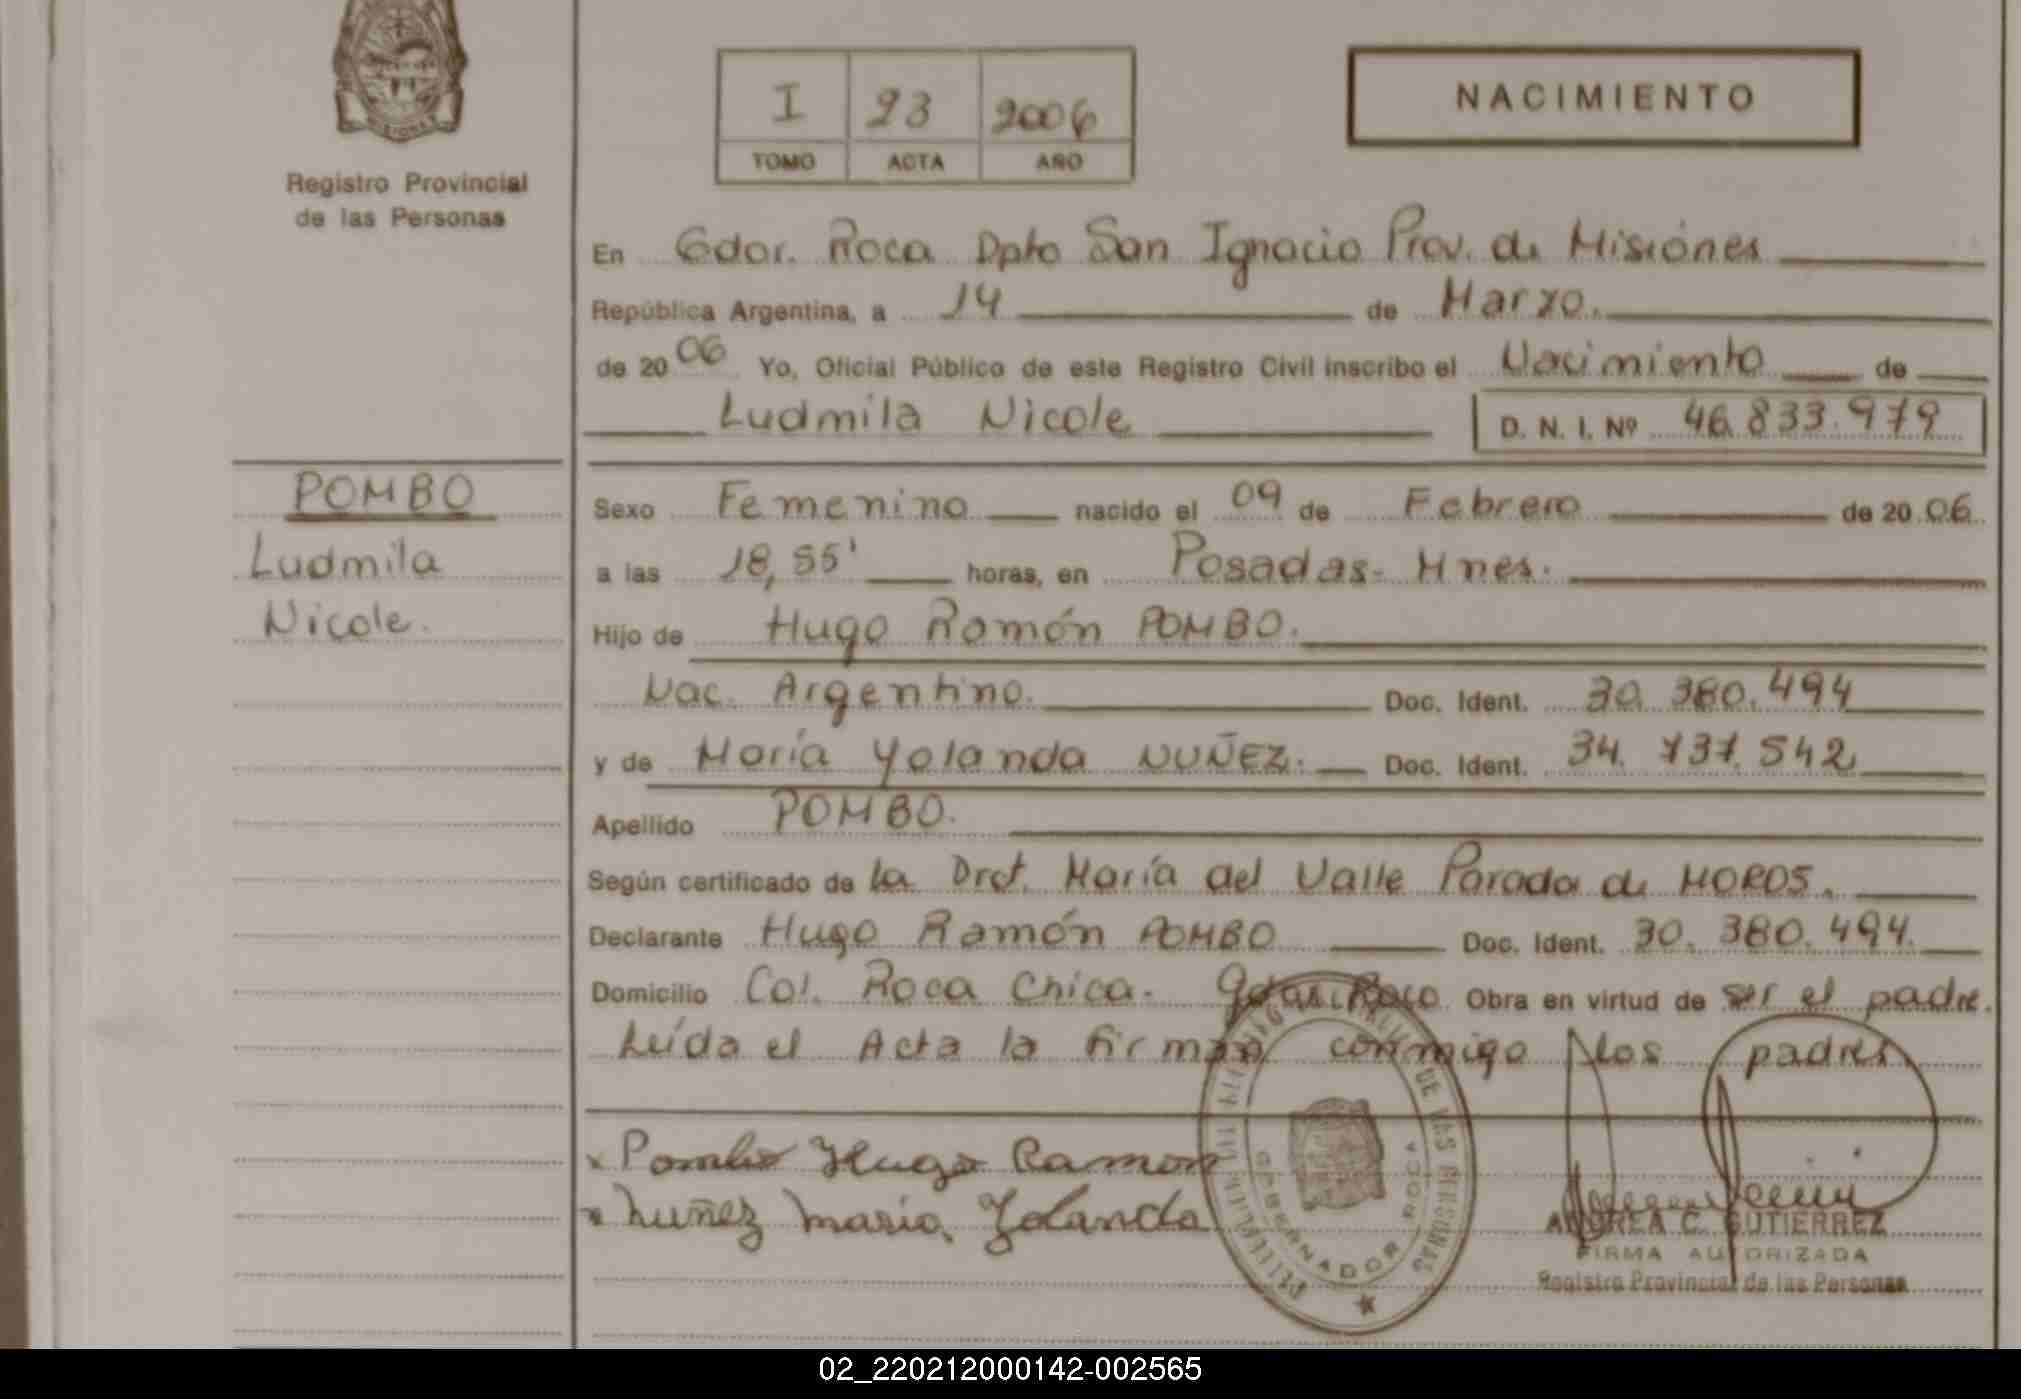 MISIONES
Registro Provincial
de las Personas
I 23 2006
TOMO ACTA AÑO
NACIMIENTO
En Gdor. Roca Dpto San Ignacio Prov. de Misiones
República Argentina, a 14 de Marzo.
de 20 06 Yo, Oficial Público de este Registro Civil inscribo el Nacimiento de
Ludmila Nicole D. N. I. Nº 46.833.979
POMBO
Ludmila
Nicole.
Sexo Femenino nacido el 09 de Febrero de 20 06
a las 18,55' horas, en Posadas- Mnes.
Hijo de Hugo Ramón POMBO.
Nac. Argentino. Doc. Ident. 30.380.494
y de María Yolanda NUÑEZ. Doc. Ident. 34.737.542
Apellido POMBO.
Según certificado de la Drct. María del Valle Parada de MOROS.
Declarante Hugo Ramón POMBO Doc. Ident. 30.380.494.
Domicilio Col. Roca Chica. Gdor. Roca Obra en virtud de ser el padre.
Leída el Acta la firman conmigo los padres
x Pombo Hugo Ramon
x Nuñez Maria Yolanda
DE LAS PERSONAS
GOBERNADOR ROCA
ANDREA C. GUTIERREZ
FIRMA AUTORIZADA
Registro Provincial de las Personas
02_220212000142-002565